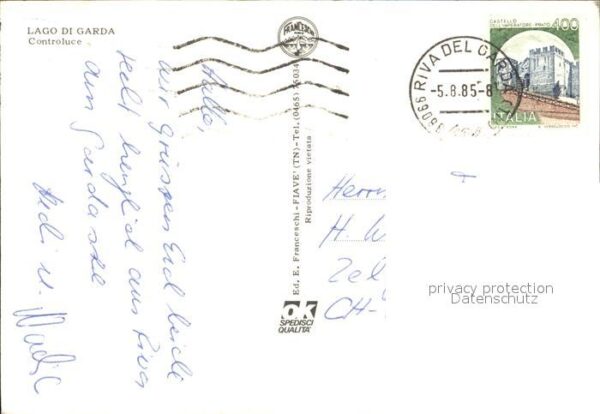 LAGO DI GARDA
Controluce
Hallo,
wir grüssen Euch beide
recht herzlich aus Riva
am Gardasee
Hedi u.
FRANCESCHI
Ed. E. Franceschi - FIAVE' (TN) - Tel. (0465)
Riproduzione vietata
ok
SPEDISCI
QUALITA'
CASTELLO
DELL'IMPERATORE - PRATO
400
ITALIA
38066 RIVA DEL GARDA
-5.8.85-8
Herrn
H. W
Zel
CH-
privacy protection
Datenschutz